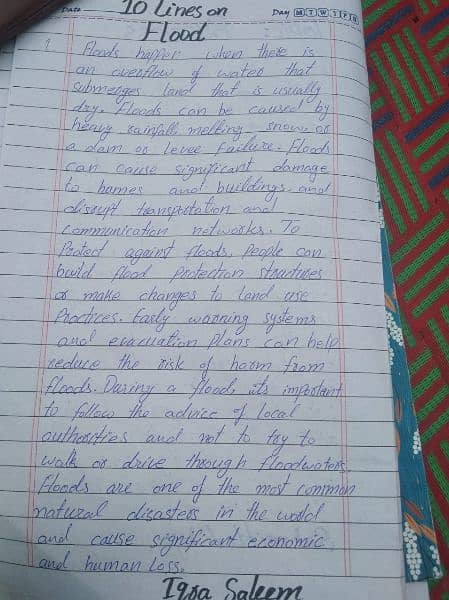 Date
10 Lines on
Day M T W T F S
Flood
1. Floods happen when there is
an overflow of water that
submerges land that is usually
dry. Floods can be caused by
heavy rainfall, melting snow, or
a dam or levee failure. Floods
can cause significant damage
to homes and buildings, and
disrupt transportation and
communication networks. To
Protect against floods, People can
build flood protection structures
or make changes to land use
Practices. Early warning systems
and evacuation plans can help
reduce the risk of harm from
floods. During a flood, its important
to follow the advice of local
authorities and not to try to
walk or drive through floodwaters.
Floods are one of the most common
natural disasters in the world
and cause significant economic
and human Loss.
Iqra Saleem